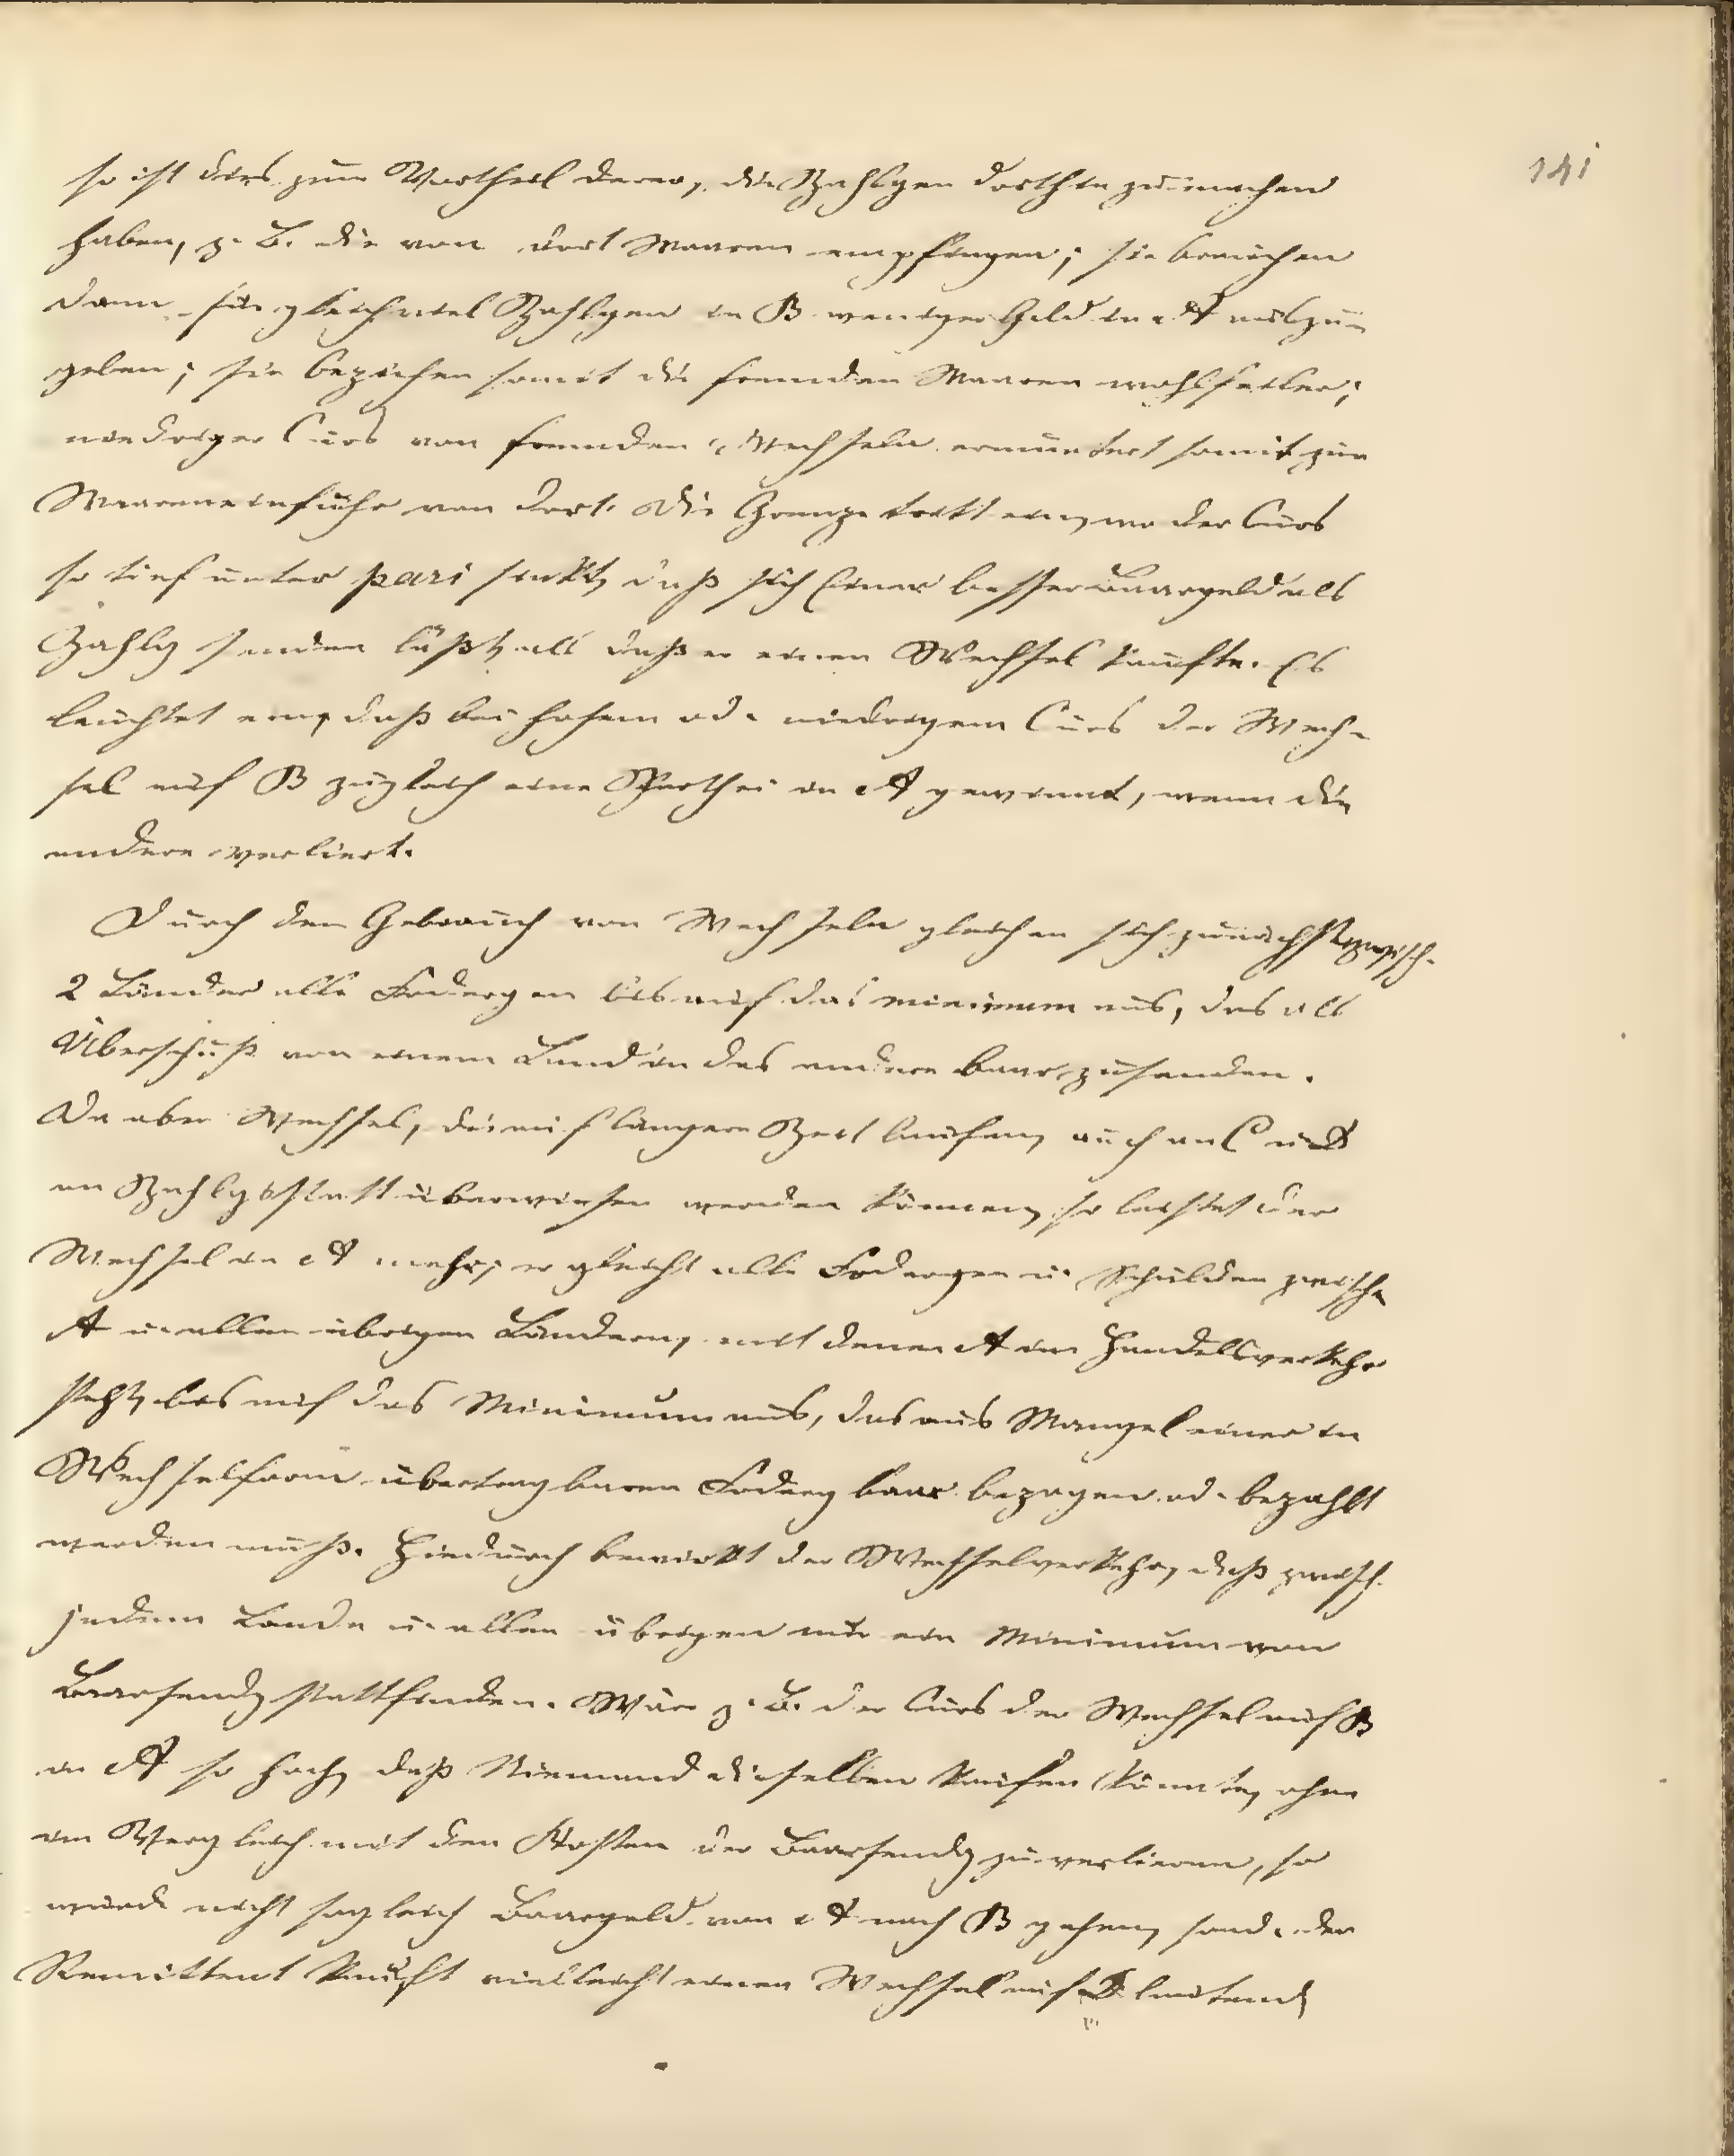 141
so ist dies zum Vortheil derer, die Zahlgen dorthin zu machen
haben, z. B. die von dort Waaren empfingen; sie brauchen
dann für gleichviel Zahlgen in B weniger Geld in A auszu-
geben; sie beziehen somit die fremden Waaren wohlfeiler;
niedriger Curs von fremden Wechseln ermuntert somit zur
Waareneinfuhr von dort. Die Grenze tritt ein, wo der Curs
so tief unter pari sinkt, daß sich Einer besser Baargeld als
Zahlg senden läßt, als daß er einen Wechsel kaufte. Es
leuchtet ein, daß bei hohem od. niedrigem Curs der Wech-
sel auf B zugleich eine Parthei in A gewinnt, wenn die
andere verliert.
Durch den Gebrauch von Wechseln gleichen sich zunächst zwisch.
2 Länder alle Fodergen bis auf das minimum aus, das als
Überschuß von einem Land in das andere baar zu senden.
Da aber Wechsel, die auf längere Zeit laufen, auch an C u. D
an Zahlgsstatt überwiesen werden können, so leistet der
Wechsel in A mehr; er gleicht alle Foderngen u. Schulden zwisch.
A u. allen übrigen Ländern, mit denen A im Handelsverkehr
steht, bis auf das Minimum aus, das aus Mangel einer in
Wechselform übertragbaren Foderg baar bezogen od. bezahlt
werden muß. Hiedurch bewirkt der Wechselverkehr, daß zwisch.
jedem Lande u. allen übrigen nur ein Minimum von
Baarsendg stattfinden. Wäre z. B. der Curs der Wechsel auf B
in A so hoch, daß Niemand dieselben kaufen könnte, ohne
im Vergleich mit den Kosten der Baarsendg zu verlieren, so
würde nicht sogleich Baargeld von A nach B gehen, sond. der
Remittent kauft vielleicht einen Wechsel auf D lautend,